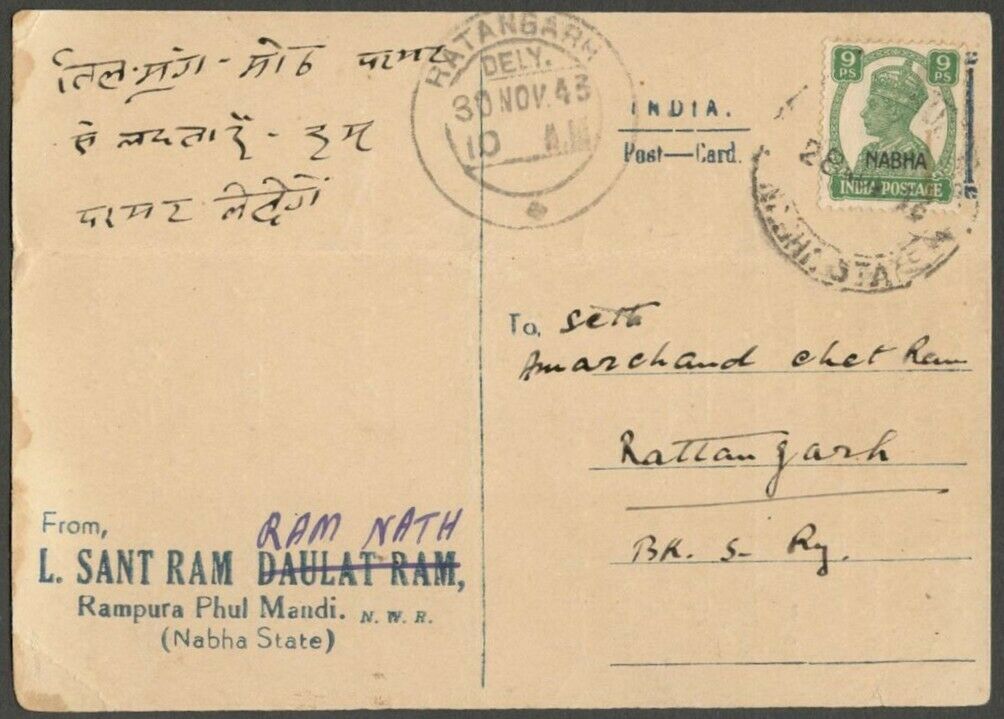 तिल-मुंग-मोठ परमट
से लदता है - हम
परमट लेलेगें
RATANGARH
DELY.
30 NOV. 43
10 A.M
INDIA.
Post—Card.
9 PS 9 PS
NABHA
INDIA POSTAGE
28 NOV
STATE
To, Seth
Amarchand Chet Ram
Rattangarh
BK. S. Ry.
From,
RAM NATH
L. SANT RAM DAULAT RAM,
Rampura Phul Mandi. N. W. R.
(Nabha State)